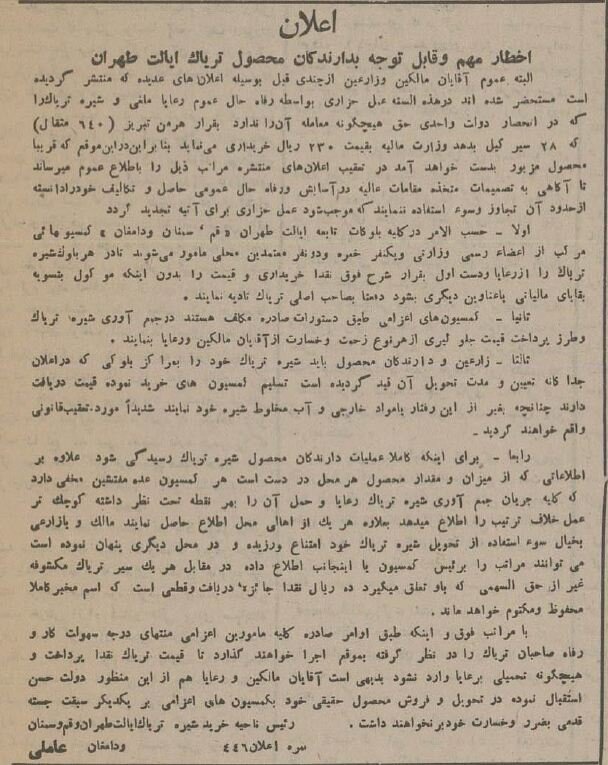 اعلان
اخطار مهم وقابل توجه بدارندکان محصول تریاك ایالت طهران
البته عموم آقایان مالکین وزارعین ازچندی قبل بوسیله اعلان‌های عدیده که منتشر گردیده
است مستحضر شده اند درهذه السنه عمل حزاری بواسطه رفاه حال عموم رعایا ملغی و شیره تریاك‌را
که در انحصار دولت واحدی حق هیچکونه معامله آن‌را ندارد بقرار هرمن تبریز (٦٤٠ مثقال)
که ٢٨ سیر کیل بدهد وزارت مالیه بقیمت ٢٣٠ ریال خریداری می‌نماید بنا براین‌دراین‌موقع که قریبا
محصول مزبور بدست خواهد آمد در تعقیب اعلان‌های منتشره مراتب ذیل را باطلاع عموم میرساند
تا آکاهی به تصمیمات متخذه مقامات عالیه درآسایش ورفاه حال عمومی حاصل و تکالیف خودرادانسته
ازحدود آن تجاوز وسوء استفاده ننمایند که موجب‌شود عمل حزاری برای آتیه تجدید گردد
اولا - حسب الامر درکلیه بلوکات تابعه ایالت طهران «قم، سمنان ودامغان» کمسیونهائی
مرکب از اعضاء رسمی وزارتی ویکنفر خبره ودونفر معتمدین محلی مامور می‌شوند تادر هربلوك‌شیره
تریاك را ازرعایا ودست اول بقرار شرح فوق نقدا خریداری و قیمت را بدون اینکه موکول بتسویه
بقایای مالیاتی یاعناوین دیگری بشود دفعتا بصاحب اصلی تریاك تادیه نمایند .
ثانیا - کمسیون‌های اعزامی طبق دستورات صادره مکلف هستند درجمع آوری شیره تریاك
وطرز پرداخت قیمت جلو گیری ازهرنوع زحمت وخسارت ازآقایان مالکین ورعایا بنمایند .
ثالثا - زارعین و دارندکان محصول باید شیره تریاك خود را بمراکز بلوکی که دراعلان
جدا کانه تعیین و مدت تحویل آن قید گردیده است تسلیم کمسیون های خرید نموده قیمت دریافت
دارند چنانچه بغیر از این رفتار یامواد خارجی و آب مخلوط شیره خود نمایند شدیداً مورد.تعقیب‌قانونی
واقع خواهند گردید -
رابعا - برای اینکه کاملا عملیات دارندکان محصول شیره تریاك رسیدگی شود علاوه بر
اطلاعاتی که از میزان و مقدار محصول هر محل در دست است هر کمسیون عده مفتشین مخفی دارد
که کلیه جریان جمع آوری شیره تریاك رعایا و حمل آن را بهر نقطه تحت نظر داشته کوچك تر
عمل خلاف ترتیب را اطلاع میدهد بعلاوه هر یك از اهالی محل اطلاع حاصل نمایند مالك و یازارعی
بخیال سوء استفاده از تحویل شیره تریاك خود امتناع ورزیده و در محل دیگری پنهان نموده است
می توانند مراتب را برئیس کمسیون یا اینجانب اطلاع داده در مقابل هر یك سیر تریاك مکشوفه
غیر از حق السهمی که باو تعلق میگیرد ده ریال نقدا جائزه دریافت وقطعی است که اسم مخبر کاملا
محفوظ ومکتوم خواهد ماند .
با مراتب فوق و اینکه طبق اوامر صادره کلیه مامورین اعزامی منتهای درجه سهولت کار و
رفاه صاحبان تریاك را در نظر گرفته بموقع اجرا خواهند گذارد تا قیمت تریاك نقدا پرداخت و
هیچکونه تحمیلی برعایا وارد نشود بدیهی است آقایان مالکین و رعایا هم از این منظور دولت حسن
استقبال نموده در تحویل و فروش محصول حقیقی خود بکمسیون های اعزامی بر یکدیکر سبقت جسته
قدمی بضرر وخسارت خودبرنخواهند داشت . رئیس ناحیه خرید شیره تریاك‌ایالت‌طهران‌وقم‌وسمنان
نمره اعلان ٤٤٦ ودامغان عاملی